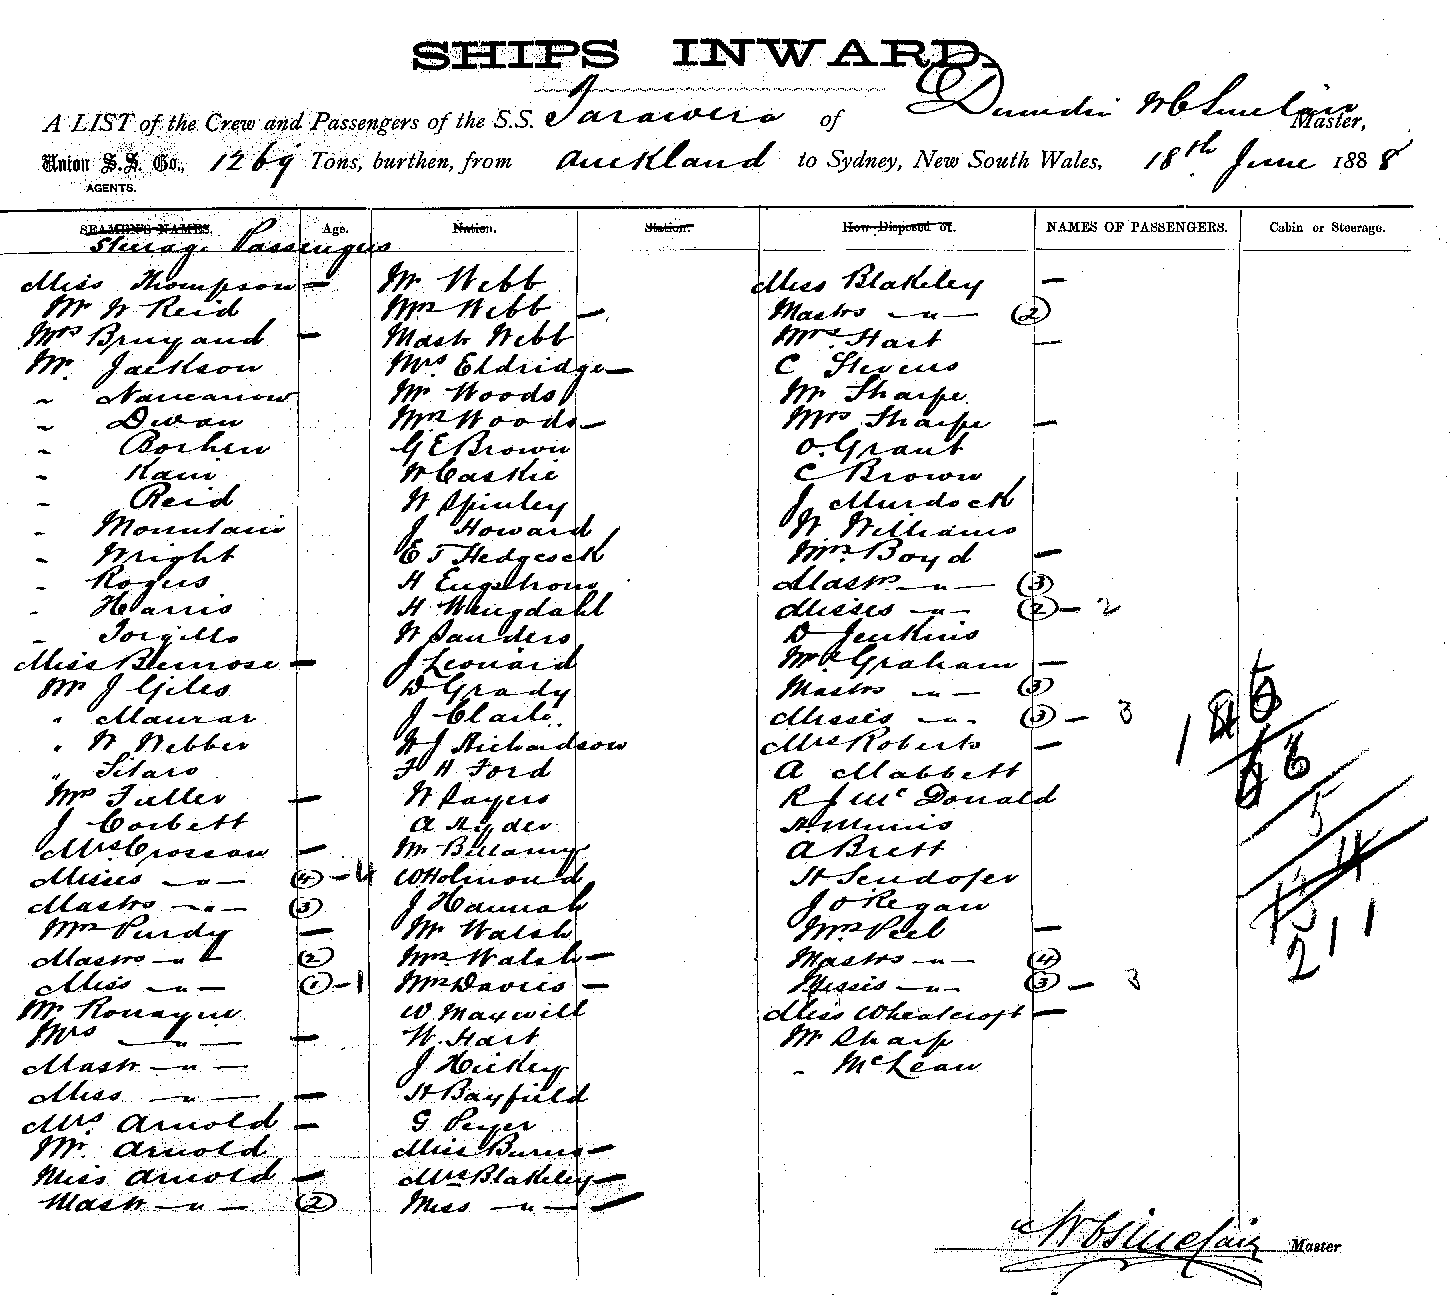 SHIPS INWARD.
A LIST of the Crew and Passengers of the S.S. Tarawera of Dunedin W C Sinclair Master,
Union S.S. Co., 1269 Tons, burthen, from Auckland to Sydney, New South Wales, 18th June 1888
AGENTS.
SEAMEN'S NAMES. Age. Nation. Station. How Disposed of. NAMES OF PASSENGERS. Cabin or Steerage.
Steerage Passengers
Miss Thompson —
Mr W Reid
Mrs Bruyand —
Mr. Jackson
" Nancarrow
" Dwan
"
" Kain
" Reid
" Mountain
" Wright
" Rogers
" Harris
"
Miss Bemrose —
Mr J Giles
"
" W Webber
"
Mrs Fuller —
J Corbett
Mrs Crossan —
Misses — " — (4) - 4
Mastrs — " — (3)
Mrs Purdy —
Mastrs — " — (2)
Miss — " — (1) - 1
Mr Ronayne
Mrs — " — —
Mastr — " —
Miss — " — —
Mrs. Arnold —
Mr. Arnold
Miss Arnold —
Mastr — " — (2)
Mr Webb
Mrs Webb —
Mastr Webb
Mrs. Eldridge —
Mr Woods
Mrs Woods —
G E Brown
W Caskie
W Spinley
J Howard
E T Hedgcock
H Engstrom
H Wengdahl
W Saunders
J Leonard
D Grady
J Clark
W J Richardson
F H Ford
W Sayers
A Hyder
Mr Bellamy
W Holmond
J Hannah
Mr Walsh
Mrs Walsh —
Mrs Davies —
W Maxwell
W. Hart
J Hickey
H Bayfield
G
Miss Burns —
Mrs Blakeley —
Miss — " — —
Miss Blakeley —
Mastrs — " — (2)
Mrs Hart —
C Stevens
Mr Sharpe
Mrs Sharpe —
O. Grant
C Brown
J Murdock
W Williams
Mrs Boyd —
Mastrs — " — (3)
Misses — " — (2) - 2
D Jenkins
Mrs Graham —
Mastrs — " — (3)
Misses — " — (3) - 3
Mrs Roberts —
A Mabbett
R J McDonald
A Brett
J O'Regan
Mrs Peel —
Mastrs — " — (4)
Misses — " — (3) - 3
Miss Wheatcroft —
Mr Sharp
" McLean
5
211
W C Sinclair Master